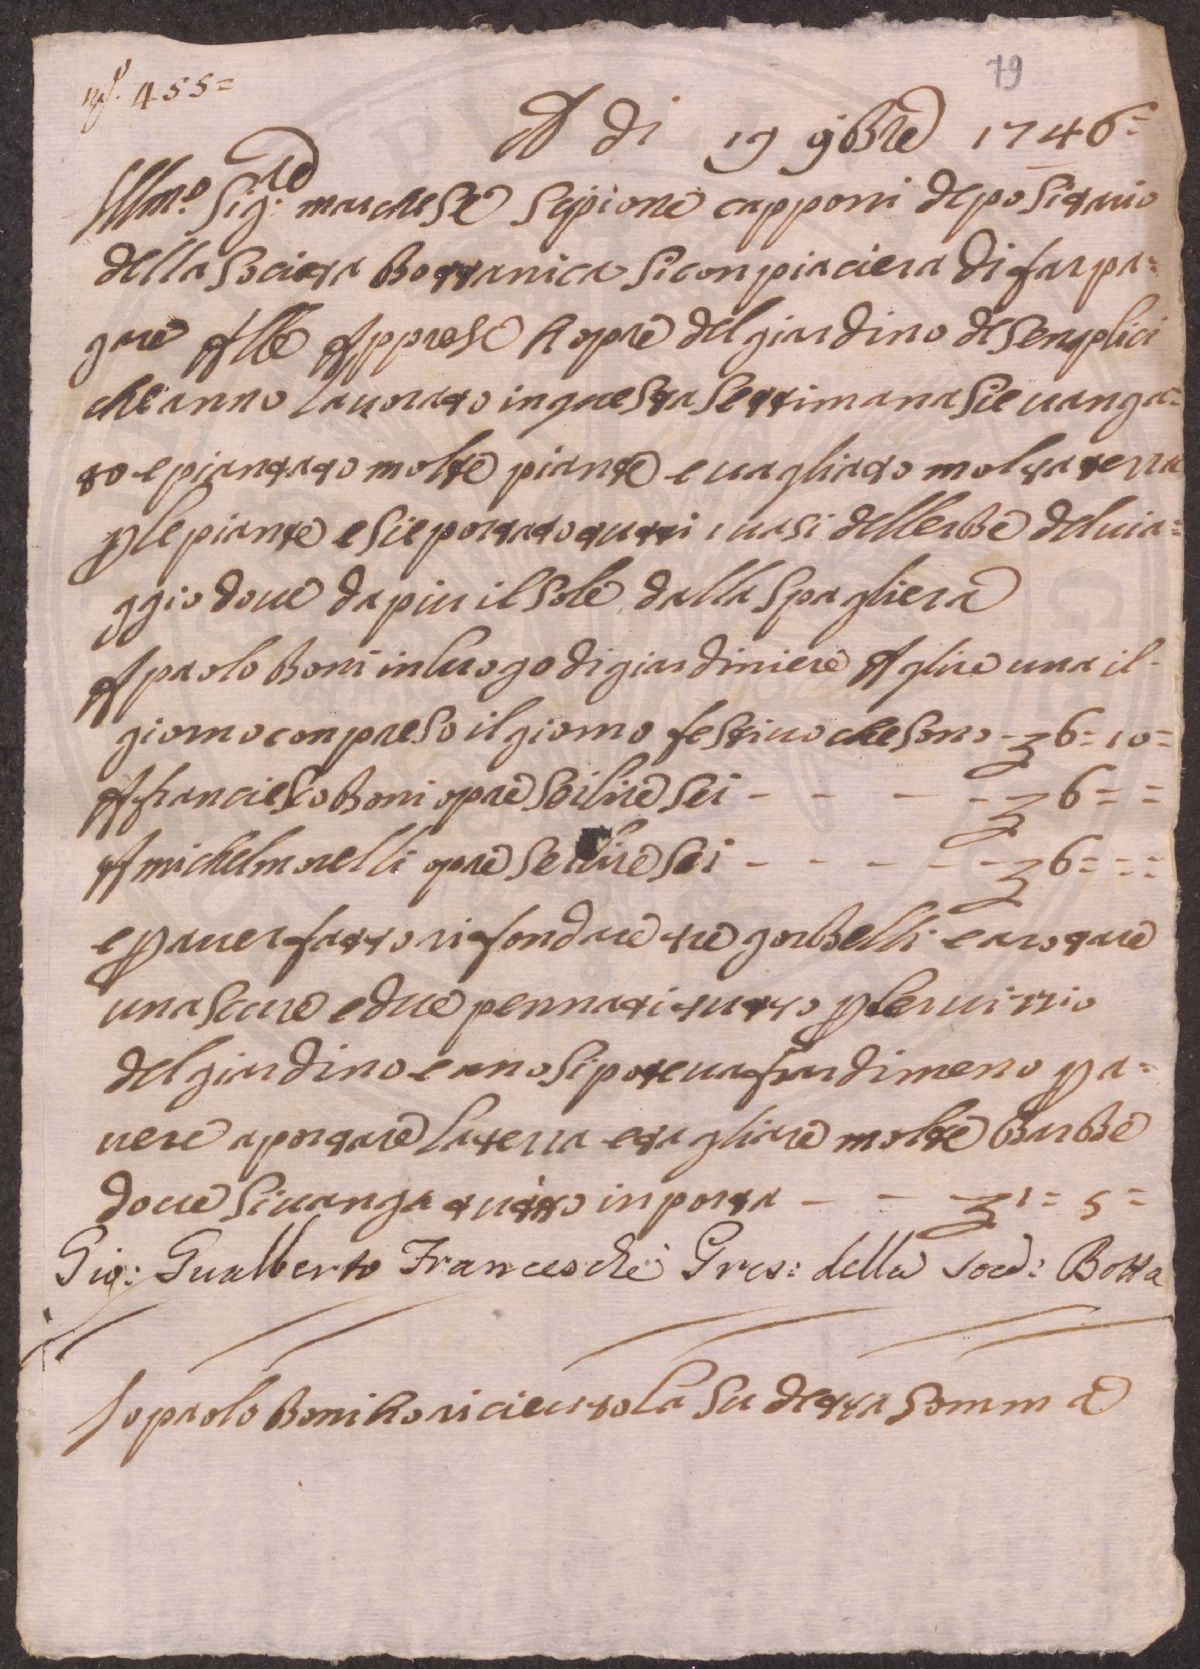 N.º 455=
79
A di 19 9bre 1746=
Illmo. Sig.re marchese Scipione capponi depositario
della Societa Bottanica Si conpiaciera di far pa=
gare Alle Apprese hopre del giardino de Senplici
che anno lavorato in questa Settimana Si e vanga=
to e piantato molte piante e vagliato molta terra
p le piante e Si e portato tutti i vasi dellerbe del via=
ggio dove da piu il Sole dalla Spagliera
A paolo Boni in luogo di giardiniere A glire una il-
giorno conpreso il giorno festivo che sono - £ 6= 10=
A franciesco Boni opre Sei lire Sei - - - - £ 6= =
A michel morelli opre Sei lire Sei - - - - - £ 6= ==
e p aver fatto rifondare tre gorbelli e arotare
una Scure e due pennati tutto p servitio
del giardino e ano si poteva far di meno p a=
vere a portare la terra e tagliare molte Barbe
dove Si vanga tutto inporta - - £ 1= 5=
Gio: Gualberto Franceschi Pres: della Soc: Botta
Io paolo Boni ho riceuto la Su detta Somma